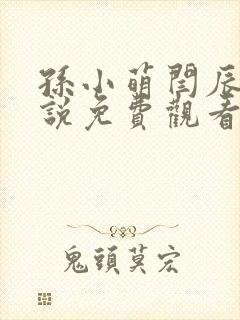 孫小萌閏辰
說免費觀看
鬼頭莫宏